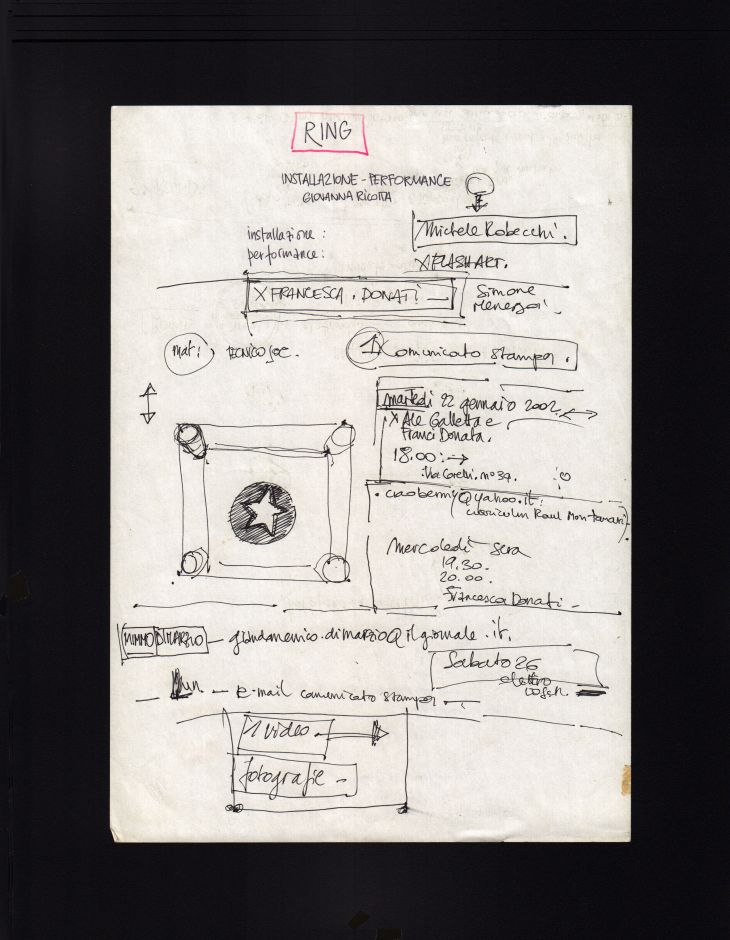 RING
INSTALLAZIONE - PERFORMANCE
GIOVANNA RICOTTA
Michele Robecchi.
X FLASH ART.
installazione :
performance:
X FRANCESCA . DONATI
Simone
Menegoi
mat:
TECNICO
1 Comunicato stampa.
martedì 22 gennaio 2002
X Ale Galletta e
Franci Donata.
18.00:
Via Corelli. nº 34.
• ciaobenny@yahoo.it.
curriculum Raul Montanari)
Mercoledì sera
19.30.
20.00.
Francesca Donati
MIMMO DI MARZIO — giandomenico.dimarzio@ilgiornale.it.
Sabato 26
elettro
— e-mail comunicato stampa
1 video
fotografie